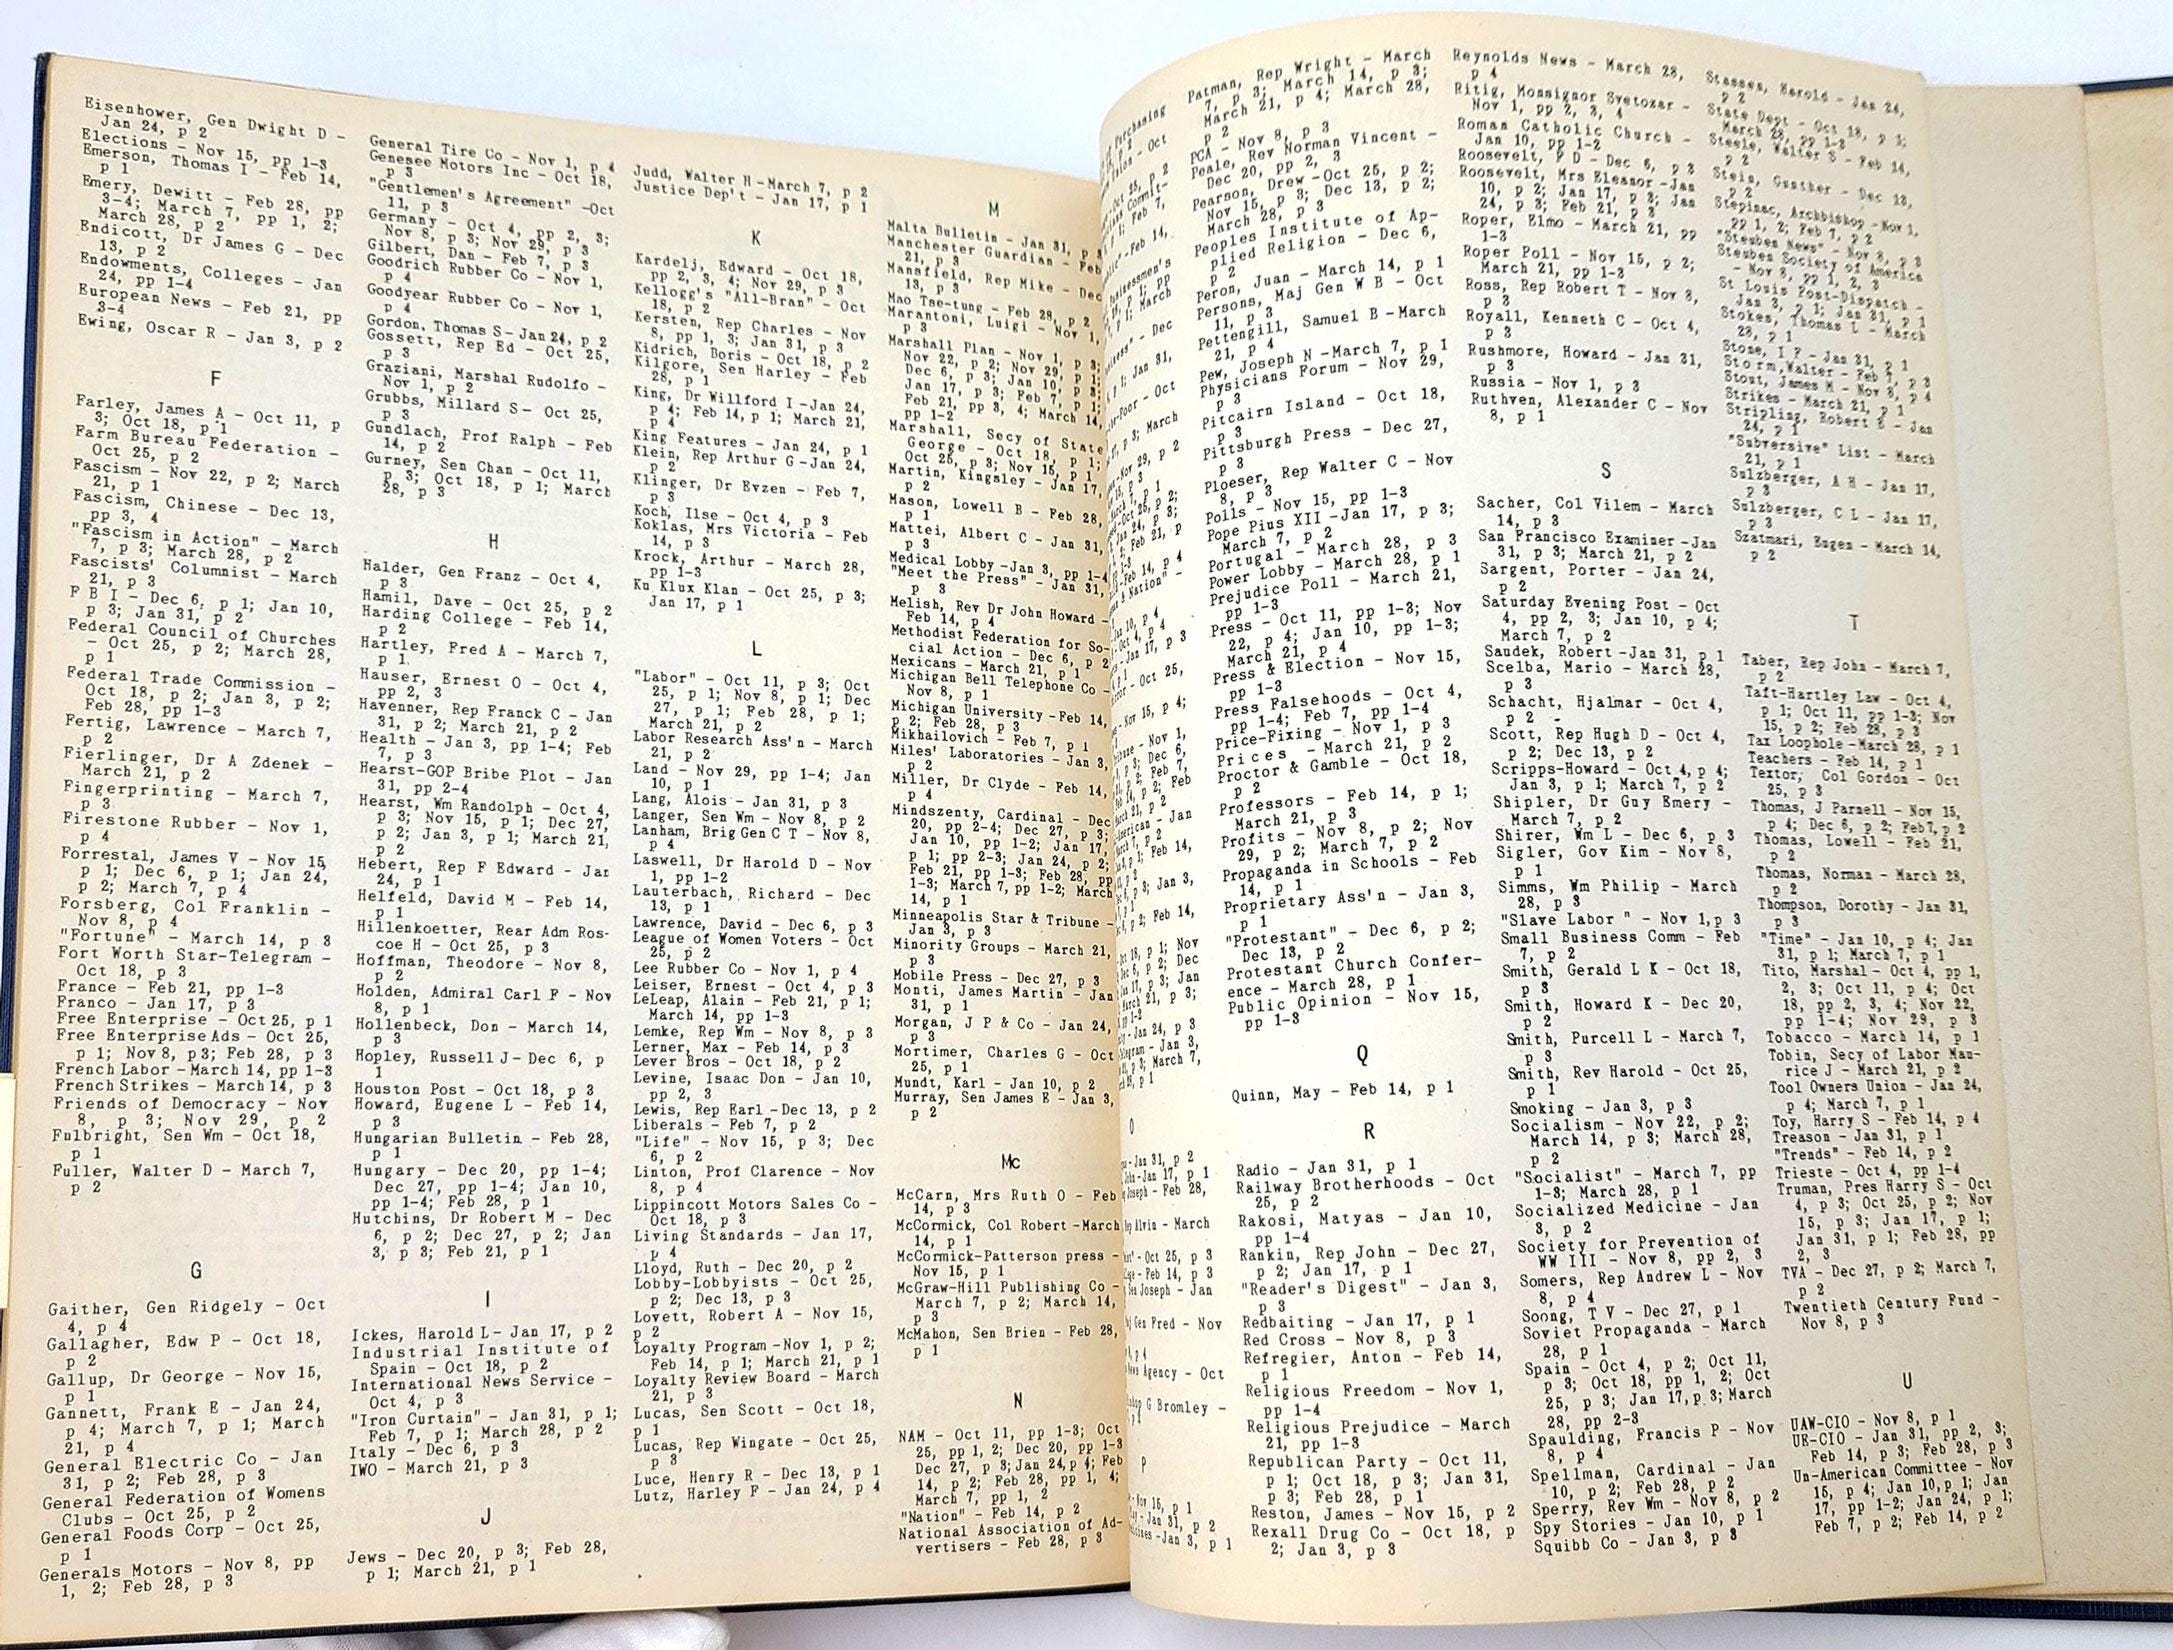 Eisenhower, Gen Dwight D -
Jan 24, p 2
Elections - Nov 15, pp 1-3
Emerson, Thomas I - Feb 14,
p 1
Emery, Dewitt - Feb 28, pp
3-4; March 7, pp 1, 2;
March 28, p 2
Endicott, Dr James G - Dec
13, p 2
Endowments, Colleges - Jan
24, pp 1-4
European News - Feb 21, pp
3-4
Ewing, Oscar R - Jan 3, p 2
F
Farley, James A - Oct 11, p
3; Oct 18, p 1
Farm Bureau Federation -
Oct 25, p 2
Fascism - Nov 22, p 2; March
21, p 1
Fascism, Chinese - Dec 13,
pp 3, 4
"Fascism in Action" - March
7, p 3; March 28, p 2
Fascists' Columnist - March
21, p 3
F B I - Dec 6, p 1; Jan 10,
p 3; Jan 31, p 2
Federal Council of Churches
- Oct 25, p 2; March 28,
p 1
Federal Trade Commission -
Oct 18, p 2; Jan 3, p 2;
Feb 28, pp 1-3
Fertig, Lawrence - March 7,
p 2
Fierlinger, Dr A Zdenek -
March 21, p 2
Fingerprinting - March 7,
p 3
Firestone Rubber - Nov 1,
p 4
Forrestal, James V - Nov 15
p 1; Dec 6, p 1; Jan 24,
p 2; March 7, p 4
Forsberg, Col Franklin -
Nov 8, p 4
"Fortune" - March 14, p 3
Fort Worth Star-Telegram -
Oct 18, p 3
France - Feb 21, pp 1-3
Franco - Jan 17, p 3
Free Enterprise - Oct 25, p 1
Free Enterprise Ads - Oct 25,
p 1; Nov 8, p 3; Feb 28, p 3
French Labor - March 14, pp 1-3
French Strikes - March 14, p 3
Friends of Democracy - Nov
8, p 3; Nov 29, p 2
Fulbright, Sen Wm - Oct 18,
p 1
Fuller, Walter D - March 7,
p 2
G
Gaither, Gen Ridgely - Oct
4, p 4
Gallagher, Edw P - Oct 18,
p 2
Gallup, Dr George - Nov 15,
p 1
Gannett, Frank E - Jan 24,
p 4; March 7, p 1; March
21, p 4
General Electric Co - Jan
31, p 2; Feb 28, p 3
General Federation of Womens
Clubs - Oct 25, p 2
General Foods Corp - Oct 25,
p 1
Generals Motors - Nov 8, pp
1, 2; Feb 28, p 3
General Tire Co - Nov 1, p 4
Genesee Motors Inc - Oct 18,
p 3
"Gentlemen's Agreement" - Oct
11, p 3
Germany - Oct 4, pp 2, 3;
Nov 8, p 3; Nov 29, p 3
Gilbert, Dan - Feb 7, p 3
Goodrich Rubber Co - Nov 1,
p 4
Goodyear Rubber Co - Nov 1,
p 4
Gordon, Thomas S - Jan 24, p 2
Gossett, Rep Ed - Oct 25,
p 3
Graziani, Marshal Rudolfo -
Nov 1, p 2
Grubbs, Millard S - Oct 25,
p 3
Gundlach, Prof Ralph - Feb
14, p 2
Gurney, Sen Chan - Oct 11,
p 3; Oct 18, p 1; March
28, p 3
H
Halder, Gen Franz - Oct 4,
p 3
Hamil, Dave - Oct 25, p 2
Harding College - Feb 14,
p 2
Hartley, Fred A - March 7,
p 1
Hauser, Ernest O - Oct 4,
pp 2, 3
Havenner, Rep Franck C - Jan
31, p 2; March 21, p 2
Health - Jan 3, pp 1-4; Feb
7, p 3
Hearst-GOP Bribe Plot - Jan
31, pp 2-4
Hearst, Wm Randolph - Oct 4,
p 3; Nov 15, p 1; Dec 27,
p 2; Jan 3, p 1; March 21,
p 2
Hebert, Rep F Edward - Jan
24, p 1
Helfeld, David M - Feb 14,
p 1
Hillenkoetter, Rear Adm Ros-
coe H - Oct 25, p 3
Hoffman, Theodore - Nov 8,
p 2
Holden, Admiral Carl F - Nov
8, p 1
Hollenbeck, Don - March 14,
p 3
Hopley, Russell J - Dec 6, p
1
Houston Post - Oct 18, p 3
Howard, Eugene L - Feb 14,
p 3
Hungarian Bulletin - Feb 28,
p 1
Hungary - Dec 20, pp 1-4;
Dec 27, pp 1-4; Jan 10,
pp 1-4; Feb 28, p 1
Hutchins, Dr Robert M - Dec
6, p 2; Dec 27, p 2; Jan
3, p 3; Feb 21, p 1
I
Ickes, Harold L - Jan 17, p 2
Industrial Institute of
Spain - Oct 18, p 2
International News Service -
Oct 4, p 3
"Iron Curtain" - Jan 31, p 1;
Feb 7, p 1; March 28, p 2
Italy - Dec 6, p 3
IWO - March 21, p 3
J
Jews - Dec 20, p 3; Feb 28,
p 1; March 21, p 1
Judd, Walter H - March 7, p 2
Justice Dep't - Jan 17, p 1
K
Kardelj, Edward - Oct 18,
pp 2, 3, 4; Nov 29, p 3
Kellogg's "All-Bran" - Oct
18, p 2
Kersten, Rep Charles - Nov
8, pp 1, 3; Jan 31, p 3
Kidrich, Boris - Oct 18, p 2
Kilgore, Sen Harley - Feb
28, p 1
King, Dr Willford I - Jan 24,
p 4; Feb 14, p 1; March 21,
p 4
King Features - Jan 24, p 1
Klein, Rep Arthur G - Jan 24,
p 2
Klinger, Dr Evzen - Feb 7,
p 3
Koch, Ilse - Oct 4, p 3
Koklas, Mrs Victoria - Feb
14, p 3
Krock, Arthur - March 28,
pp 1-3
Ku Klux Klan - Oct 25, p 3;
Jan 17, p 1
L
"Labor" - Oct 11, p 3; Oct
25, p 1; Nov 8, p 1; Dec
27, p 1; Feb 28, p 1;
March 21, p 2
Labor Research Ass'n - March
21, p 2
Land - Nov 29, pp 1-4; Jan
10, p 1
Lang, Alois - Jan 31, p 3
Langer, Sen Wm - Nov 8, p 2
Lanham, Brig Gen C T - Nov 8,
p 4
Laswell, Dr Harold D - Nov
1, pp 1-2
Lauterbach, Richard - Dec
13, p 1
Lawrence, David - Dec 6, p 3
League of Women Voters - Oct
25, p 2
Lee Rubber Co - Nov 1, p 4
Leiser, Ernest - Oct 4, p 3
LeLeap, Alain - Feb 21, p 1;
March 14, pp 1-3
Lemke, Rep Wm - Nov 8, p 3
Lerner, Max - Feb 14, p 3
Lever Bros - Oct 18, p 2
Levine, Isaac Don - Jan 10,
pp 2, 3
Lewis, Rep Earl - Dec 13, p 2
Liberals - Feb 7, p 2
"Life" - Nov 15, p 3; Dec
6, p 2
Linton, Prof Clarence - Nov
8, p 4
Lippincott Motors Sales Co -
Oct 18, p 3
Living Standards - Jan 17,
p 4
Lloyd, Ruth - Dec 20, p 2
Lobby-Lobbyists - Oct 25,
p 2; Dec 13, p 3
Lovett, Robert A - Nov 15,
p 2
Loyalty Program - Nov 1, p 2;
Feb 14, p 1; March 21, p 1
Loyalty Review Board - March
21, p 3
Lucas, Sen Scott - Oct 18,
p 1
Lucas, Rep Wingate - Oct 25,
p 3
Luce, Henry R - Dec 13, p 1
Lutz, Harley F - Jan 24, p 4
M
Malta Bulletin - Jan 31, p 3
Manchester Guardian - Feb
21, p 3
Mansfield, Rep Mike - Dec
13, p 3
Mao Tse-tung - Feb 28, p 2
Marantoni, Luigi - Nov 1,
p 3
Marshall Plan - Nov 1, p 3;
Nov 22, p 2; Nov 29, p 1;
Dec 6, p 3; Jan 10, p 1;
Jan 17, p 3; Feb 7, p 1;
Feb 21, pp 3, 4; March 14,
pp 1-2
Marshall, Secy of State
George - Oct 18, p 1;
Oct 25, p 3; Nov 15, p 1
Martin, Kingsley - Jan 17,
p 2
Mason, Lowell B - Feb 28,
p 1
Mattei, Albert C - Jan 31,
p 3
Medical Lobby - Jan 3, pp 1-4
"Meet the Press" - Jan 31,
p 3
Melish, Rev Dr John Howard -
Feb 14, p 4
Methodist Federation for So-
cial Action - Dec 6, p 2
Mexicans - March 21, p 1
Michigan Bell Telephone Co -
Nov 8, p 1
Michigan University - Feb 14,
p 2; Feb 28, p 3
Mikhailovich - Feb 7, p 1
Miles' Laboratories - Jan 3,
p 2
Miller, Dr Clyde - Feb 14,
p 4
Mindszenty, Cardinal - Dec
20, pp 2-4; Dec 27, p 3;
Jan 10, pp 1-2; Jan 17,
p 1; pp 2-3; Jan 24, p 2;
Feb 21, pp 1-3; Feb 28, pp
1-3; March 7, pp 1-2; March
14, p 1
Minneapolis Star & Tribune -
Jan 3, p 3
Minority Groups - March 21,
p 3
Mobile Press - Dec 27, p 3
Monti, James Martin - Jan
31, p 1
Morgan, J P & Co - Jan 24,
p 3
Mortimer, Charles G - Oct
25, p 1
Mundt, Karl - Jan 10, p 2
Murray, Sen James E - Jan 3,
p 2
Mc
McCarn, Mrs Ruth O - Feb
14, p 3
McCormick, Col Robert - March
14, p 1
McCormick-Patterson press -
Nov 15, p 1
McGraw-Hill Publishing Co -
March 7, p 2; March 14,
p 3
McMahon, Sen Brien - Feb 28,
p 1
N
NAM - Oct 11, pp 1-3; Oct
25, pp 1, 2; Dec 20, pp 1-3
Dec 27, p 3; Jan 24, p 4; Feb
14, p 2; Feb 28, pp 1, 4;
March 7, pp 1, 2
"Nation" - Feb 14, p 2
National Association of Ad-
vertisers - Feb 28, p 3
Purchasing
O
P
Patman, Rep Wright - March
7, p 3; March 14, p 3;
March 21, p 4; March 28,
p 2
PCA - Nov 8, p 3
Peale, Rev Norman Vincent -
Dec 20, pp 2, 3
Pearson, Drew - Oct 25, p 2;
Nov 15, p 3; Dec 13, p 2;
March 28, p 3
Peoples Institute of Ap-
plied Religion - Dec 6,
p 2
Peron, Juan - March 14, p 1
Persons, Maj Gen W B - Oct
11, p 3
Pettengill, Samuel B - March
21, p 4
Pew, Joseph N - March 7, p 1
Physicians Forum - Nov 29,
p 3
Pitcairn Island - Oct 18,
p 3
Pittsburgh Press - Dec 27,
p 3
Ploeser, Rep Walter C - Nov
8, p 3
Polls - Nov 15, pp 1-3
Pope Pius XII - Jan 17, p 3;
March 7, p 2
Portugal - March 28, p 3
Power Lobby - March 28, p 1
Prejudice Poll - March 21,
pp 1-3
Press - Oct 11, pp 1-3; Nov
22, p 4; Jan 10, pp 1-3;
March 21, p 4
Press & Election - Nov 15,
pp 1-3
Press Falsehoods - Oct 4,
pp 1-4; Feb 7, pp 1-4
Price-Fixing - Nov 1, p 3
Prices - March 21, p 2
Proctor & Gamble - Oct 18,
p 2
Professors - Feb 14, p 1;
March 21, p 3
Profits - Nov 8, p 2; Nov
29, p 2; March 7, p 2
Propaganda in Schools - Feb
14, p 1
Proprietary Ass'n - Jan 3,
p 1
"Protestant" - Dec 6, p 2;
Dec 13, p 2
Protestant Church Confer-
ence - March 28, p 1
Public Opinion - Nov 15,
pp 1-3
Q
Quinn, May - Feb 14, p 1
R
Radio - Jan 31, p 1
Railway Brotherhoods - Oct
25, p 2
Rakosi, Matyas - Jan 10,
pp 1-4
Rankin, Rep John - Dec 27,
p 2; Jan 17, p 1
"Reader's Digest" - Jan 3,
p 3
Redbaiting - Jan 17, p 1
Red Cross - Nov 8, p 3
Refregier, Anton - Feb 14,
p 1
Religious Freedom - Nov 1,
pp 1-4
Religious Prejudice - March
21, pp 1-3
Republican Party - Oct 11,
p 1; Oct 18, p 3; Jan 31,
p 3; Feb 28, p 1
Reston, James - Nov 15, p 2
Rexall Drug Co - Oct 18, p
2; Jan 3, p 3
Reynolds News - March 28,
p 4
Ritig, Monsignor Svetozar -
Nov 1, pp 2, 3, 4
Roman Catholic Church -
Jan 10, pp 1-2
Roosevelt, F D - Dec 6, p 3
Roosevelt, Mrs Eleanor - Jan
10, p 2; Jan 17, p 3; Jan
24, p 3; Feb 21, p 3
Roper, Elmo - March 21, pp
1-3
Roper Poll - Nov 15, p 2;
March 21, pp 1-3
Ross, Rep Robert T - Nov 8,
p 3
Royall, Kenneth C - Oct 4,
p 3
Rushmore, Howard - Jan 31,
p 3
Russia - Nov 1, p 3
Ruthven, Alexander C - Nov
8, p 1
S
Sacher, Col Vilem - March
14, p 3
San Francisco Examiner - Jan
31, p 3; March 21, p 2
Sargent, Porter - Jan 24,
p 2
Saturday Evening Post - Oct
4, pp 2, 3; Jan 10, p 4;
March 7, p 2
Saudek, Robert - Jan 31, p 1
Scelba, Mario - March 28,
p 3
Schacht, Hjalmar - Oct 4,
p 2 -
Scott, Rep Hugh D - Oct 4,
p 2; Dec 13, p 2
Scripps-Howard - Oct 4, p 4;
Jan 3, p 1; March 7, p 2
Shipler, Dr Guy Emery -
March 7, p 2
Shirer, Wm L - Dec 6, p 3
Sigler, Gov Kim - Nov 8,
p 1
Simms, Wm Philip - March
28, p 3
"Slave Labor " - Nov 1, p 3
Small Business Comm - Feb
7, p 2
Smith, Gerald L K - Oct 18,
p 3
Smith, Howard K - Dec 20,
p 2
Smith, Purcell L - March 7,
p 3
Smith, Rev Harold - Oct 25,
p 1
Smoking - Jan 3, p 3
Socialism - Nov 22, p 2;
March 14, p 3; March 28,
p 2
"Socialist" - March 7, pp
1-3; March 28, p 1
Socialized Medicine - Jan
3, p 2
Society for Prevention of
WW III - Nov 8, pp 2, 3
Somers, Rep Andrew L - Nov
8, p 4
Soong, T V - Dec 27, p 1
Soviet Propaganda - March
28, p 1
Spain - Oct 4, p 2; Oct 11,
p 3; Oct 18, pp 1, 2; Oct
25, p 3; Jan 17, p 3; March
28, pp 2-3
Spaulding, Francis P - Nov
8, p 4
Spellman, Cardinal - Jan
10, p 2; Feb 28, p 2
Sperry, Rev Wm - Nov 8, p 2
Spy Stories - Jan 10, p 1
Squibb Co - Jan 3, p 3
Stassen, Harold - Jan 24,
p 2
State Dept - Oct 18, p 1;
March 28, pp 1-3
Steele, Walter S - Feb 14,
p 2
Stein, Gunther - Dec 13,
p 2
Stepinac, Archbishop - Nov 1,
pp 1, 2; Feb 7, p 2
"Steuben News" - Nov 8, p 3
Steuben Society of America
- Nov 8, pp 1, 2, 3
St Louis Post-Dispatch -
Jan 3, p 1; Jan 31, p 1
Stokes, Thomas L - March
28, p 1
Stone, I F - Jan 31, p 1
Storm, Walter - Feb 7, p 3
Stout, James M - Nov 8, p 4
Strikes - March 21, p 1
Stripling, Robert E - Jan
24, p 1
"Subversive" List - March
21, p 1
Sulzberger, A H - Jan 17,
p 3
Sulzberger, C L - Jan 17,
p 3
Szatmari, Eugen - March 14,
p 2
T
Taber, Rep John - March 7,
p 2
Taft-Hartley Law - Oct 4,
p 1; Oct 11, pp 1-3; Nov
15, p 2; Feb 28, p 3
Tax Loophole - March 28, p 1
Teachers - Feb 14, p 1
Textor, Col Gordon - Oct
25, p 3
Thomas, J Parnell - Nov 15,
p 4; Dec 6, p 2; Feb 7, p 2
Thomas, Lowell - Feb 21,
p 2
Thomas, Norman - March 28,
p 2
Thompson, Dorothy - Jan 31,
p 3
"Time" - Jan 10, p 4; Jan
31, p 1; March 7, p 1
Tito, Marshal - Oct 4, pp 1,
2, 3; Oct 11, p 4; Oct
18, pp 2, 3, 4; Nov 22,
pp 1-4; Nov 29, p 3
Tobacco - March 14, p 1
Tobin, Secy of Labor Mau-
rice J - March 21, p 2
Tool Owners Union - Jan 24,
p 4; March 7, p 1
Toy, Harry S - Feb 14, p 4
Treason - Jan 31, p 1
"Trends" - Feb 14, p 2
Trieste - Oct 4, pp 1-4
Truman, Pres Harry S - Oct
4, p 3; Oct 25, p 2; Nov
15, p 3; Jan 17, p 1;
Jan 31, p 1; Feb 28, pp
2, 3
TVA - Dec 27, p 2; March 7,
p 2
Twentieth Century Fund -
Nov 8, p 3
U
UAW-CIO - Nov 8, p 1
UE-CIO - Jan 31, pp 2, 3;
Feb 14, p 3; Feb 28, p 3
Un-American Committee - Nov
15, p 4; Jan 10, p 1; Jan
17, pp 1-2; Jan 24, p 1;
Feb 7, p 2; Feb 14, p 2